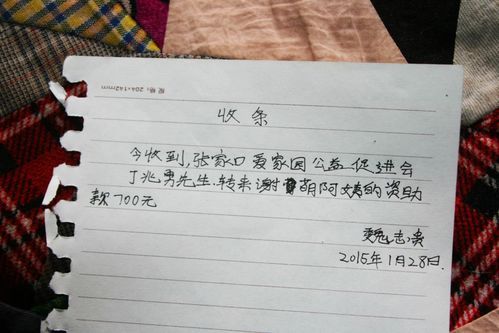 规格:204×142mm
收条
今收到,张家口爱家园公益促进会
丁兆勇先生,转来谢萌阿姨的资助
款700元
魏志贵
2015年1月28日.